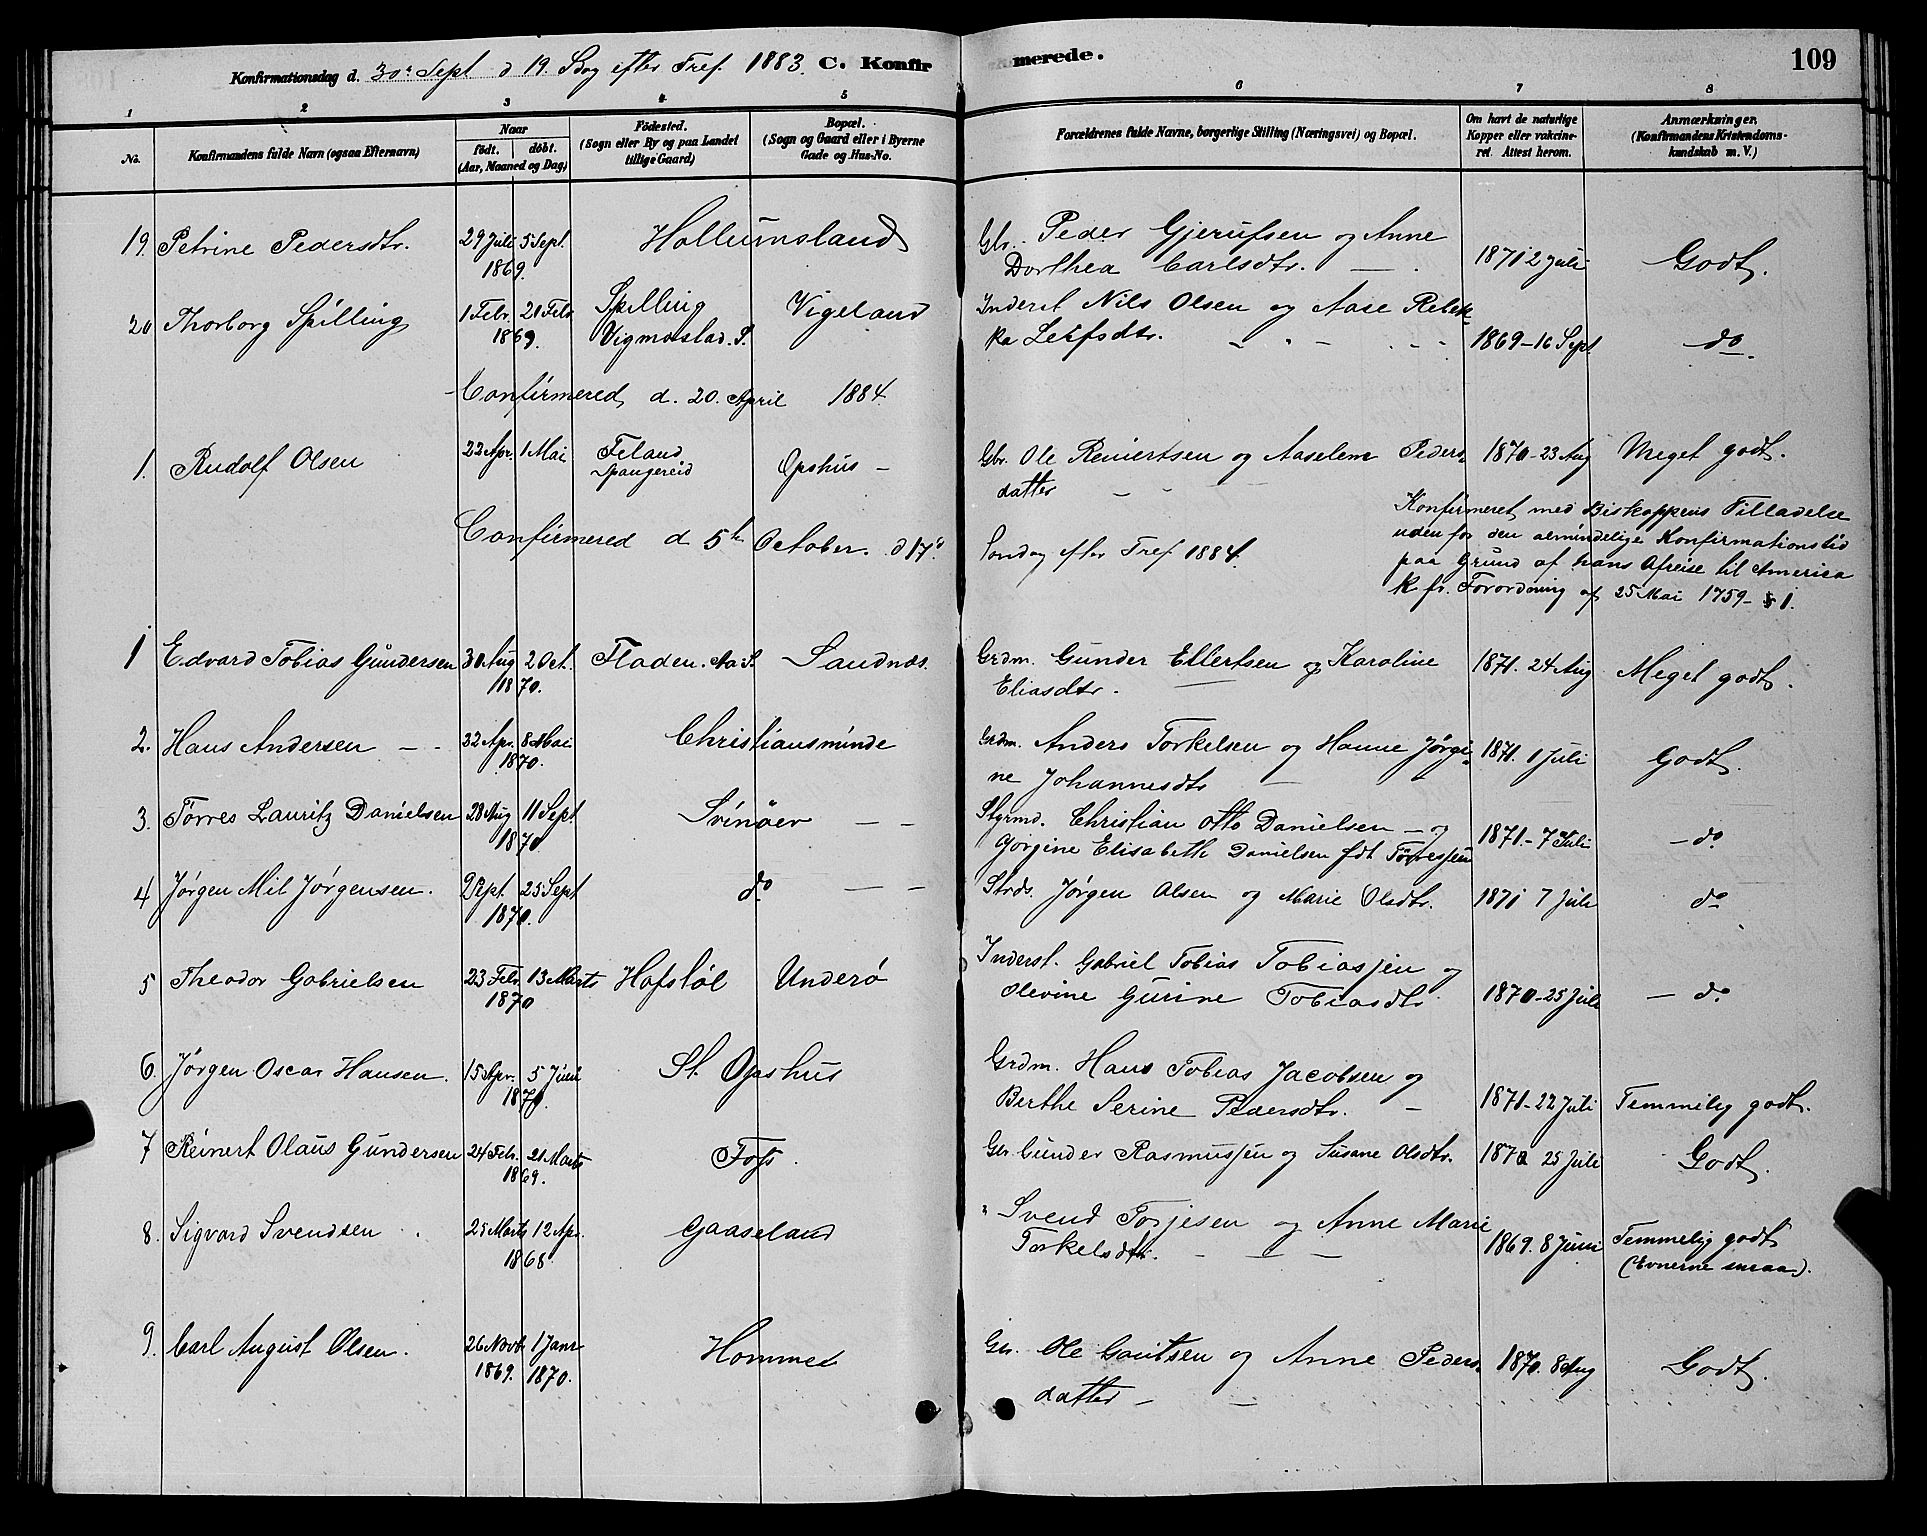 Konfirmationsdag d. 30te Sept d 19. Sdag efter Tref. 1883. C. Konfirmerede.
109
1 2 3 4 5 6 7 8
No.
Konfirmandens fulde Navn (ogsaa Efternavn)
Naar
født. døbt.
(Aar, Maaned og Dag)
Fødested.
(Sogn eller By og paa Landet
tillige Gaard)
Bopæl.
(Sogn og Gaard eller i Byerne
Gade og Hus-No.
Forældrenes fulde Navne, borgerlige Stilling (Næringsvei) og Bopæl.
Om havt de naturlige
Kopper eller vakcine-
ret. Attest herom.
Anmærkninger.
(Konfirmandens Kristendoms-
kundskab m. V.)
19. Petrine Pedersdtr. 29 Juli 5 Sept. Hallumsland Gbr. Peder Gjerulfsen og Anne
1869. Dorthea Carlsdtr. — 1871 2 Juli Godt.
20 Thorborg Spilling 1 Febr. 21 Feb Spilling Vigeland Inderst Nils Olsen og Aase Rebek-
1869. Vigmostad. S. ka Leifsdtr. 1869 - 16 Sept. do
Confirmered d. 20. April 1884
1. Rudolf Olsen 22 Apr. 1 Mai Feland Opshus - Gbr. Ole Reinertsen og Aaselene Peders- 1870 - 23 Aug Meget godt.
Spangereid datter
Confirmered d 5te October. d 17de Søndag efter Tref 1884.
Konfirmeret med Biskoppens Tilladelse
udenfor den almindelige Konfirmationstid
paa Grund af hans Afreise til America
k fr. Forordning af 25 Mai 1759 - § 1.
1 Edvard Tobias Gundersen 30 Aug 2 Oct. Fladen. Aa. S. Sandnæs. Grdm. Gunder Ellertsen og Karoline 1871. 24 Aug Meget godt.
1870. Eliasdtr.
2. Hans Andersen — - 22 Apr. 8 Mai Christiansminde Grdm. Anders Torkelsen og Hanne Jørgi- 1871. 1 Juli Godt.
1870. ne Johannesdtr
3. Tørres Lauritz Danielsen 28 Aug 11 Sept Svinøer — — Styrmd. Christian Otto Danielsen — og
1870 Gorgine Elisabeth Danielsen fdt Tørresen 1871. - 7 Juli — do
4 Jørgen Mil Jørgensen. 2 Sept. 25 Sept do — — Strds. Jørgen Olsen og Marie Olsdtr. 1871 7 Juli do
1870.
5 Theodor Gabrielsen 23 Febr. 13 Marts Hafstøl Underø Inderst. Gabriel Tobias Tobiassen og
1870 Olevine Gurine Tobiasdtr 1870 - 25 Juli — do
6. Jørgen Oscar Hansen. 15 Apr. 5 Juni St. Opshus Grdm. Hans Tobias Jacobsen og
1870. Berthe Serine Pedersdtr. — 1871 - 22 Juli Temmelig godt.
7 Reinert Olaus Gundersen 24 Febr. 21 Marts Foss. Gbr Gunder Rasmussen og Susane Olsdtr. 1870 25 Juli Godt.
1869.
8. Sigvard Svendsen 25 Marts 12 Apr. Gaaseland " Svend Torjesen og Anne Marie
1868 Torkelsdtr. — — — 1869. 8 Juni Temmelig godt
(Evnerne smaa).
9. Carl August Olsen. 26 Novb 1 Janr Hommen Gbr. Ole Gautsen og Anne Peders- 1870. 8 Aug Godt.
1869. 1870. datter —